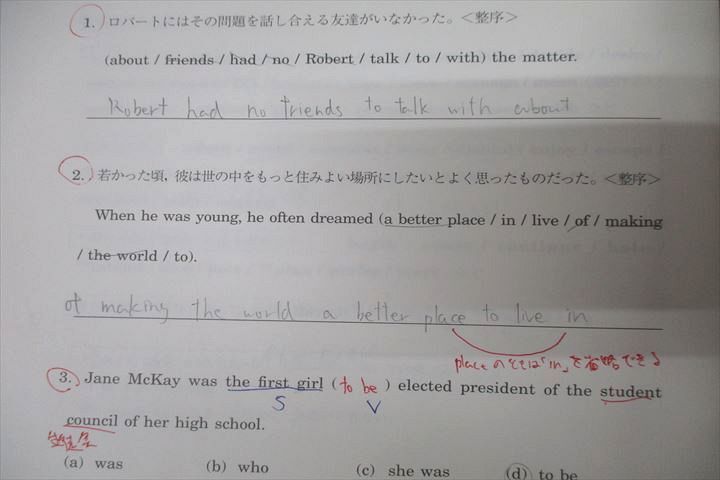 1. ロバートにはその問題を話し合える友達がいなかった。＜整序＞
(about / friends / had / no / Robert / talk / to / with) the matter.
Robert had no friends to talk with about
2. 若かった頃, 彼は世の中をもっと住みよい場所にしたいとよく思ったものだった。＜整序＞
When he was young, he often dreamed (a better place / in / live / of / making
/ the world / to).
of making the world a better place to live in
placeのときは「in」を省略できる
3. Jane McKay was the first girl ( to be ) elected president of the student
S V
council of her high school.
生徒会
(a) was (b) who (c) she was (d) to be